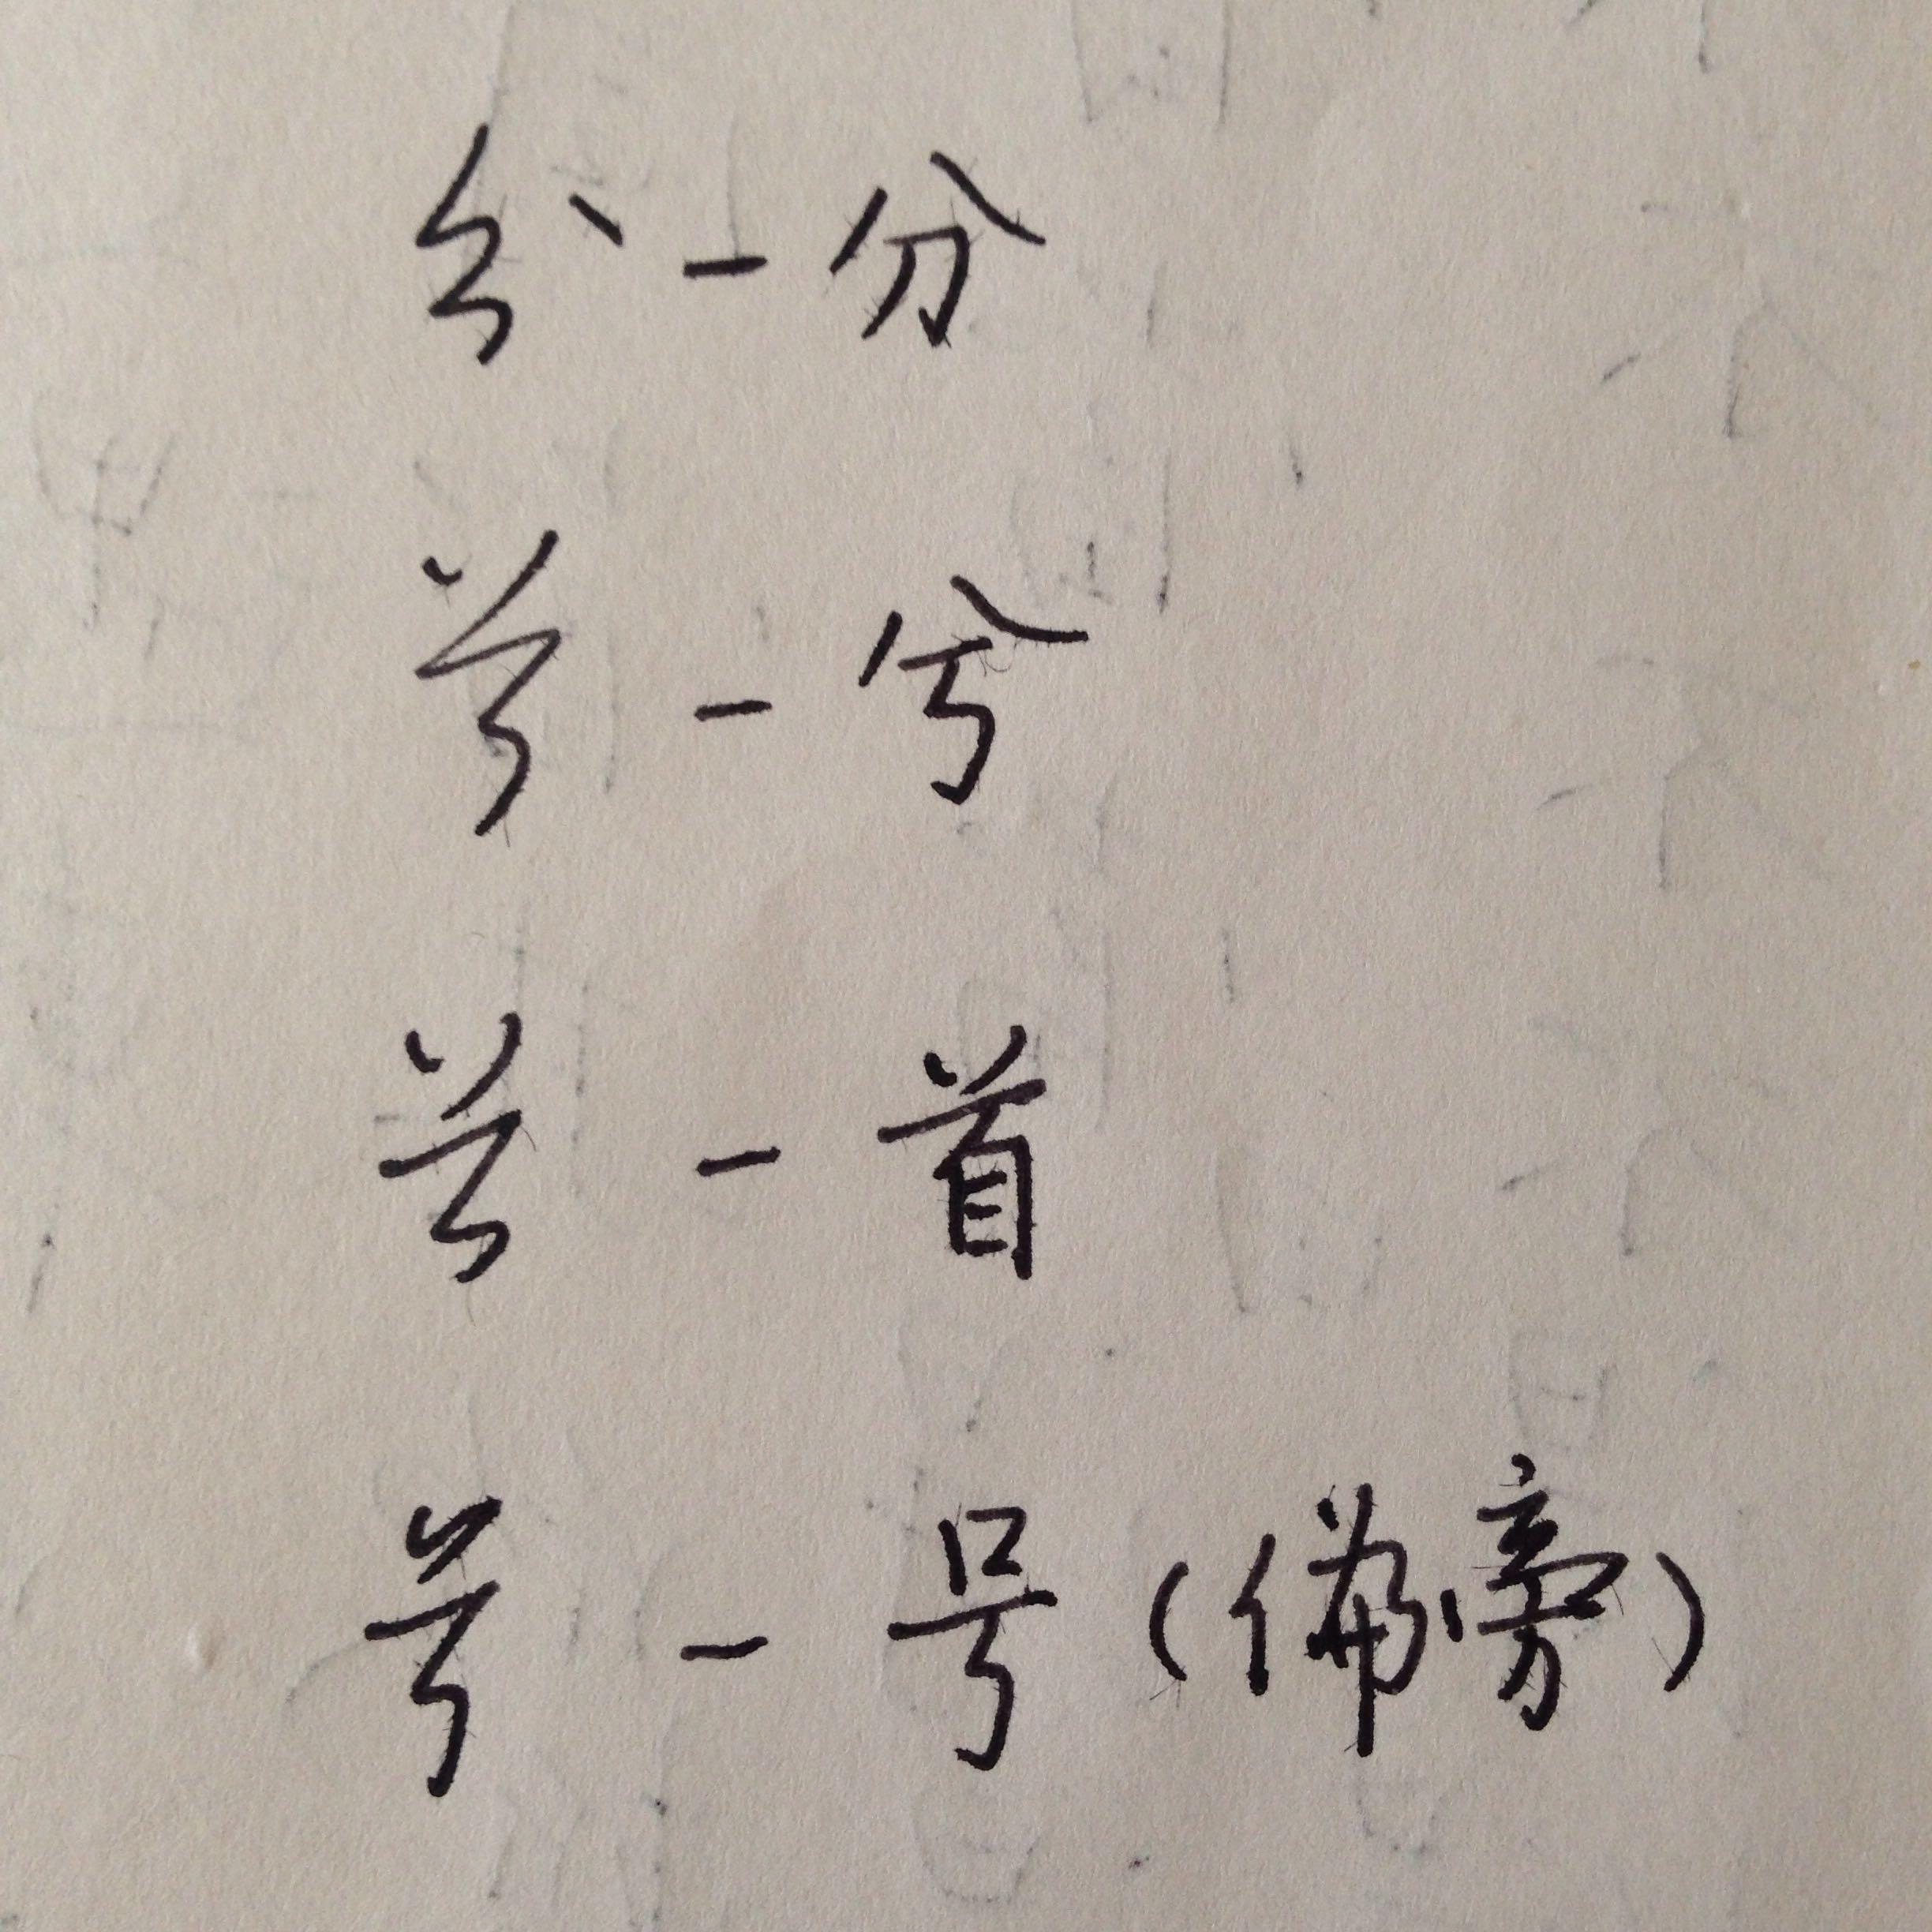 分 - 分
兮 - 兮
首 - 首
号 - 号 (偏旁)